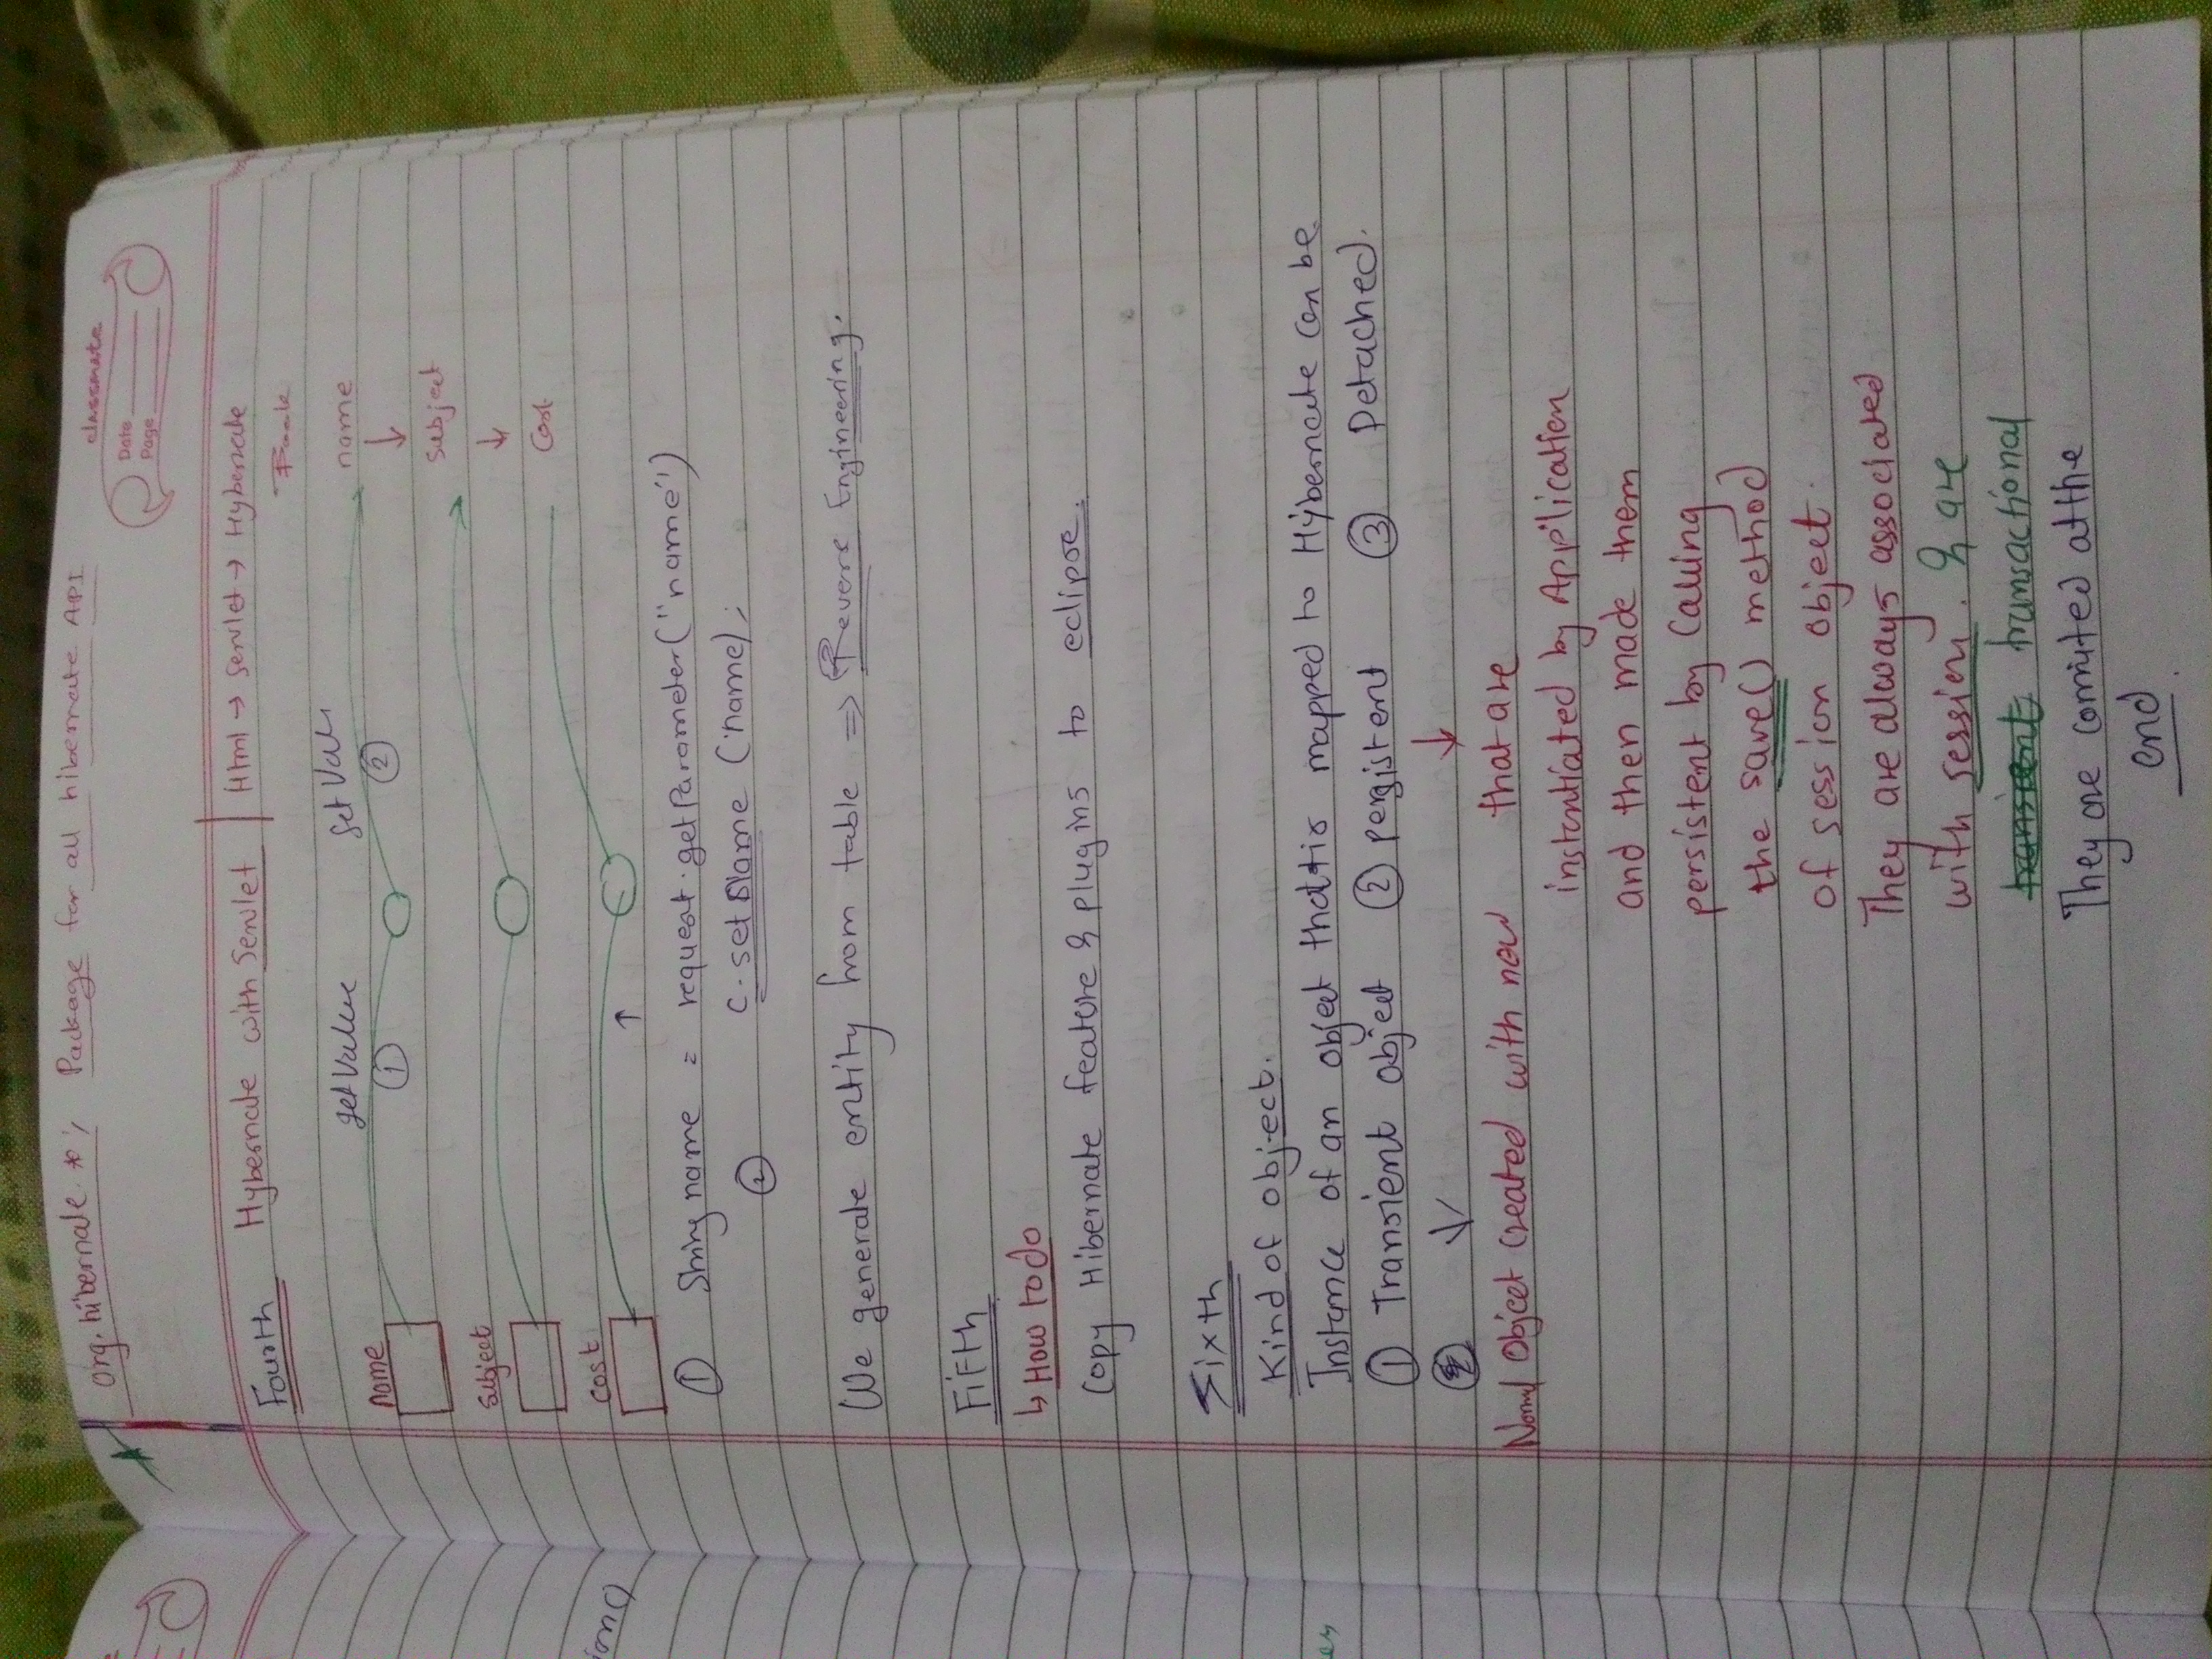 org.hibernate.*; Package for all hibernate API
classmate
Date
Page
Fourth Hybernate with Servlet | Html → Servlet → Hybernate
name getValue ① set Valu ② name
↓
Subject
subject
↓
Cost
cost
↑
① String name = request.getParameter("name")
② c.set Name (name);
We generate entity from table ⇒ Revers Engineering.
FiFth
↳ How to do
Copy Hibernate feature & plugins to eclipse.
Sixth
Kind of object.
Instance of an object that is mapped to Hybernate can be
① Transient object ② persistent ③ Detached.
↓ ↓
Normal Object created with new that are
instantiated by Application
and then made them
persistent by Calling
the save() method
of session object.
They are always associated
with session. & are
transient transactional
They are commited at the
end.
ion()